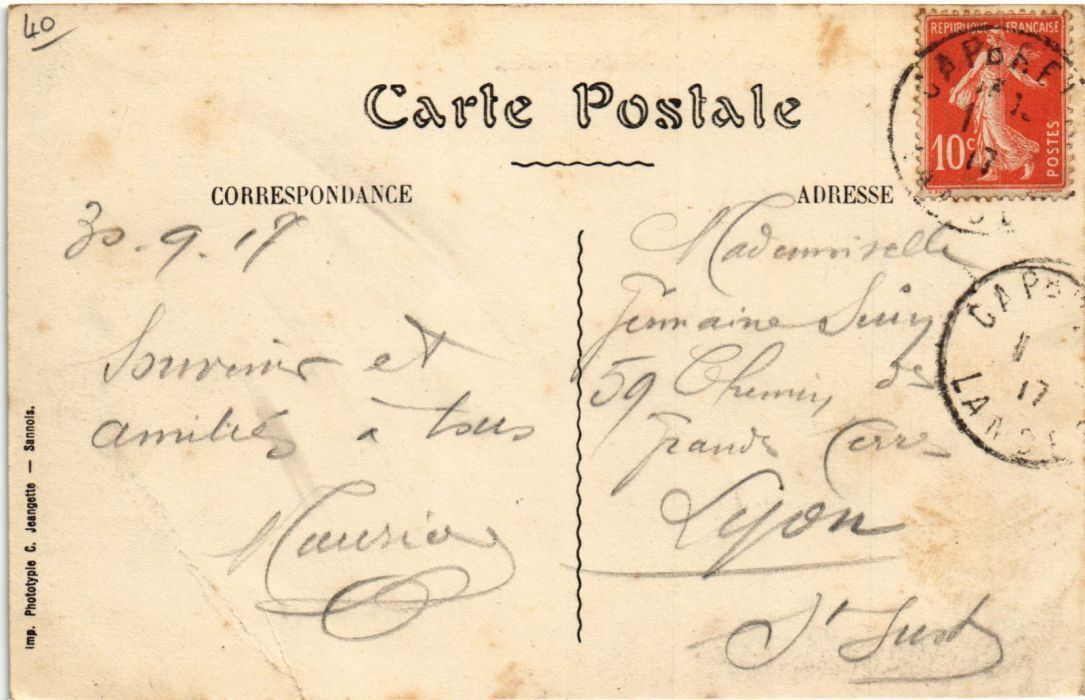 40
Carte Postale
CORRESPONDANCE
ADRESSE
REPUBLIQUE FRANÇAISE
10c
POSTES
CAPBRE
17
LANDES
CAPB
17
LANDES
30.9.17
Souvenir et
amitiés à tous
Maurice
Mademoiselle
Germaine
59 Chemin des
Grandes Terres
Lyon
St Just
Imp. Phototypie C. Jeangette — Sannois.